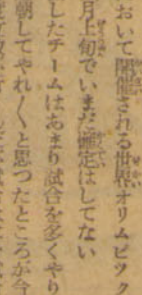 おいて開催される世界オリムピツク
月上旬でいまだ確定はしてない
したチームはあまり試合を多くやり
朝してやれ〳〵と思つたところが今